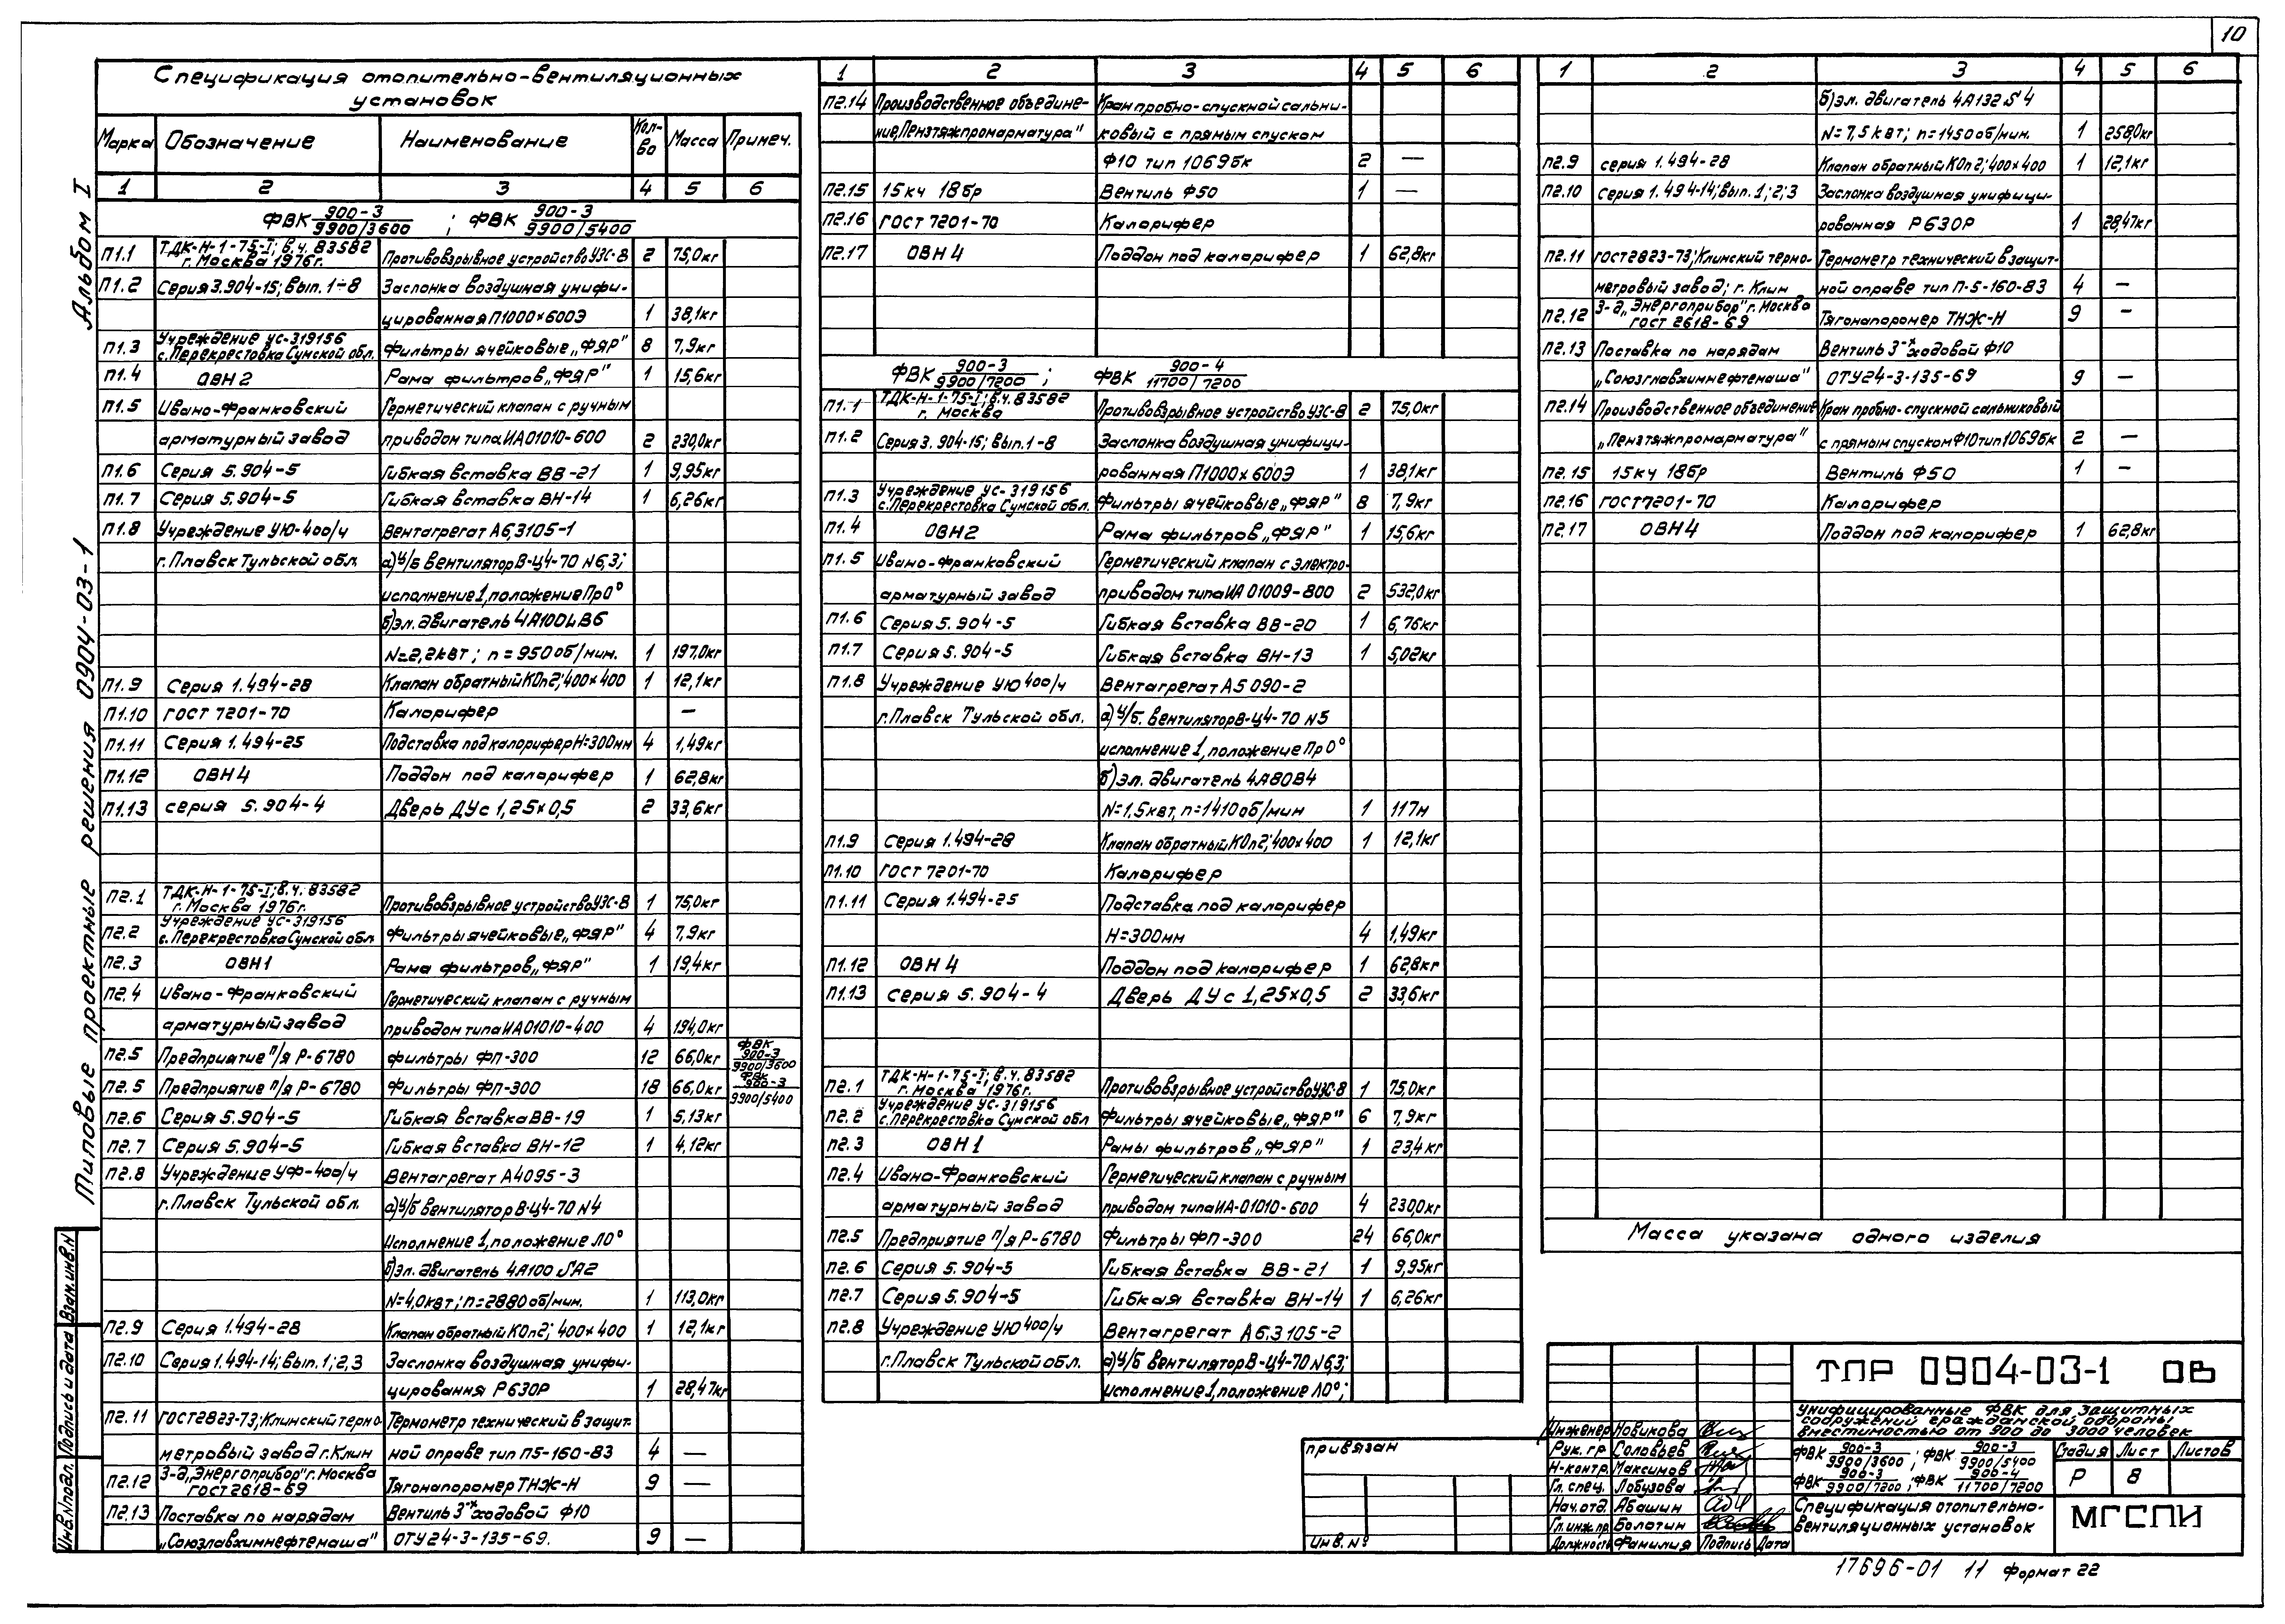 10
Альбом I
Типовые проектные решения 0904-03-1
Спецификация отопительно-вентиляционных
установок
Марка Обозначение Наименование Кол-во Масса Примеч.
1 2 3 4 5 6
ФВК 900-3/9900/3600 ; ФВК 900-3/9900/5400
П1.1 ТДК-Н-1-75-I; в.ч. 83582 г. Москва 1976г. Противовзрывное устройство УЗС-8 2 75,0кг
П1.2 Серия 3.904-15; вып. 1÷8 Заслонка воздушная унифи-
цированная П1000×600Э 1 38,1кг
П1.3 Учреждение УС-319156 с. Перекрестовка Сумской обл. Фильтры ячейковые „ФЯР" 8 7,9кг
П1.4 ОВН2 Рама фильтров „ФЯР" 1 15,6кг
П1.5 Ивано-Франковский Герметический клапан с ручным
арматурный завод приводом типа ИА01010-600 2 230,0кг
П1.6 Серия 5.904-5 Гибкая вставка ВВ-21 1 9,95кг
П1.7 Серия 5.904-5 Гибкая вставка ВН-14 1 6,26кг
П1.8 Учреждение УЮ-400/ч Вентагрегат А6,3105-1
г. Плавск Тульской обл. а) ц/б вентилятор В-Ц4-70 N6,3;
исполнение 1, положение Пр0°
б) эл. двигатель 4А100LB6
N=2,2квт; n=950об/мин. 1 197,0кг
П1.9 Серия 1.494-28 Клапан обратный КОп2; 400×400 1 12,1кг
П1.10 ГОСТ 7201-70 Калорифер —
П1.11 Серия 1.494-25 Подставка под калорифер Н=300мм 4 1,49кг
П1.12 ОВН4 Поддон под калорифер 1 62,8кг
П1.13 серия 5.904-4 Дверь ДУс 1,25×0,5 2 33,6кг
П2.1 ТДК-Н-1-75-I; в.ч. 83582 г. Москва 1976г. Противовзрывное устройство УЗС-8 1 75,0кг
П2.2 Учреждение УС-319156 с. Перекрестовка Сумской обл Фильтры ячейковые „ФЯР" 4 7,9кг
П2.3 ОВН1 Рама фильтров „ФЯР" 1 19,4кг
П2.4 Ивано-Франковский Герметический клапан с ручным
арматурный завод приводом типа ИА01010-400 4 194,0кг
П2.5 Предприятие п/я Р-6780 Фильтры ФП-300 12 66,0кг ФВК 900-3/9900/3600
П2.5 Предприятие п/я Р-6780 Фильтры ФП-300 18 66,0кг ФВК 900-3/9900/5400
П2.6 Серия 5.904-5 Гибкая вставка ВВ-19 1 5,13кг
П2.7 Серия 5.904-5 Гибкая вставка ВН-12 1 4,12кг
П2.8 Учреждение УФ-400/ч Вентагрегат А4095-3
г. Плавск Тульской обл. а) ц/б вентилятор В-Ц4-70 N4
Исполнение 1, положение Л0°
б) эл. двигатель 4А100 SА2
N=4,0квт; n=2880об/мин. 1 113,0кг
П2.9 Серия 1.494-28 Клапан обратный КОп2; 400×400 1 12,1кг
П2.10 Серия 1.494-14; вып. 1; 2,3 Заслонка воздушная унифи-
цирования Р630Р 1 28,47кг
П2.11 ГОСТ2823-73; Клинский термо- Термометр технический в защит.
метровый завод г. Клин ной оправе тип П5-160-83 4 —
П2.12 З-д „Энергоприбор" г. Москва ГОСТ 2618-69 Тягонапоромер ТНЖ-Н 9 —
П2.13 Поставка по нарядам Вентиль 3-х ходовой Ф10
„Союзлавхимнефтемаша" ОТУ24-3-135-69. 9 —
1 2 3 4 5 6
П2.14 Производственное объедине- Кран пробно-спускной сальни-
ние „Пензтяжпромарматура" ковый с прямым спуском
Ф10 тип 10б9бк 2 —
П2.15 15кч 18бр Вентиль Ф50 1 —
П2.16 ГОСТ 7201-70 Калорифер
П2.17 ОВН4 Поддон под калорифер 1 62,8кг
ФВК 900-3/9900/7200 ; ФВК 900-4/11700/7200
П1.1 ТДК-Н-1-75-I; в.ч. 83582 г. Москва Противовзрывное устройство УЗС-8 2 75,0кг
П1.2 Серия 3.904-15; вып. 1-8 Заслонка воздушная унифици-
рованная П1000×600Э 1 38,1кг
П1.3 Учреждение УС-319156 с. Перекрестовка Сумской обл. Фильтры ячейковые „ФЯР" 8 7,9кг
П1.4 ОВН2 Рама фильтров „ФЯР" 1 15,6кг
П1.5 Ивано-Франковский Герметический клапан с электро-
арматурный завод приводом типа ИА 01009-800 2 532,0кг
П1.6 Серия 5.904-5 Гибкая вставка ВВ-20 1 6,76кг
П1.7 Серия 5.904-5 Гибкая вставка ВН-13 1 5,02кг
П1.8 Учреждение УЮ 400/ч Вентагрегат А5 090-2
г. Плавск Тульской обл. а) ц/б. вентилятор В-Ц4-70 N5
исполнение 1, положение Пр0°
б) эл. двигатель 4А80В4
N=1,5квт, n=1410об/мин 1 117н
П1.9 Серия 1.494-28 Клапан обратный КОп2; 400×400 1 12,1кг
П1.10 ГОСТ 7201-70 Калорифер
П1.11 Серия 1.494-25 Подставка под калорифер
Н=300мм 4 1,49кг
П1.12 ОВН 4 Поддон под калорифер 1 62,8кг
П1.13 серия 5.904-4 Дверь ДУс 1,25×0,5 2 33,6кг
П2.1 ТДК-Н-1-75-I; в.ч. 83582 г. Москва 1976г. Противовзрывное устройство УЗС-8 1 75,0кг
П2.2 Учреждение УС-319156 с. Перекрестовка Сумской обл Фильтры ячейковые „ФЯР" 6 7,9кг
П2.3 ОВН1 Рамы фильтров „ФЯР" 1 23,4кг
П2.4 Ивано-Франковский Герметический клапан с ручным
арматурный завод приводом типа ИА-01010-600 4 230,0кг
П2.5 Предприятие п/я Р-6780 Фильтры ФП-300 24 66,0кг
П2.6 Серия 5.904-5 Гибкая вставка ВВ-21 1 9,95кг
П2.7 Серия 5.904-5 Гибкая вставка ВН-14 1 6,26кг
П2.8 Учреждение УЮ 400/ч Вентагрегат А6,3105-2
г. Плавск Тульской обл. а) ц/б вентилятор В-Ц4-70 N6,3;
исполнение 1, положение Л0°;
1 2 3 4 5 6
б) эл. двигатель 4А132 S 4
N=7,5квт; n=1450об/мин. 1 258,0кг
П2.9 серия 1.494-28 Клапан обратный КОп2; 400×400 1 12,1кг
П2.10 серия 1.494-14; вып. 1; 2; 3 Заслонка воздушная унифици-
рованная Р630Р 1 28,47кг
П2.11 ГОСТ2823-73; Клинский термо- Термометр технический в защит-
метровый завод; г. Клин ной оправе тип П-5-160-83 4 —
П2.12 З-д „Энергоприбор" г. Москва ГОСТ 2618-69 Тягонапоромер ТНЖ-Н 9 —
П2.13 Поставка по нарядам Вентиль 3-х ходовой Ф10
„Союзглавхимнефтемаша" ОТУ24-3-135-69 9 —
П2.14 Производственное объединение Кран пробно-спускной сальниковый
„Пензтяжпромарматура" с прямым спуском Ф10 тип 10б9бк 2 —
П2.15 15кч 18бр Вентиль Ф50 1 —
П2.16 ГОСТ7201-70 Калорифер
П2.17 ОВН4 Поддон под калорифер 1 62,8кг
Масса указана одного изделия
Инв.Nподл. Подпись и дата Взам.инв.N
привязан
Инв. №
ТПР 0904-03-1 ОВ
Унифицированные ФВК для защитных
сооружений гражданской обороны
вместимостью от 900 до 3000 человек
Инженер Новикова
Рук. гр Соловьев
Н-контр. Максимов
Гл. спец. Лобузова
Нач. отд. Абашин
Гл. инж. пр. Болотин
Должность Фамилия Подпись Дата
ФВК 900-3/9900/3600 ; ФВК 900-3/9900/5400
ФВК 900-3/9900/7200 ; ФВК 900-4/11700/7200
Стадия Лист Листов
Р 8
Спецификация отопительно-
вентиляционных установок
МГСПИ
17696-01 11 Формат 22